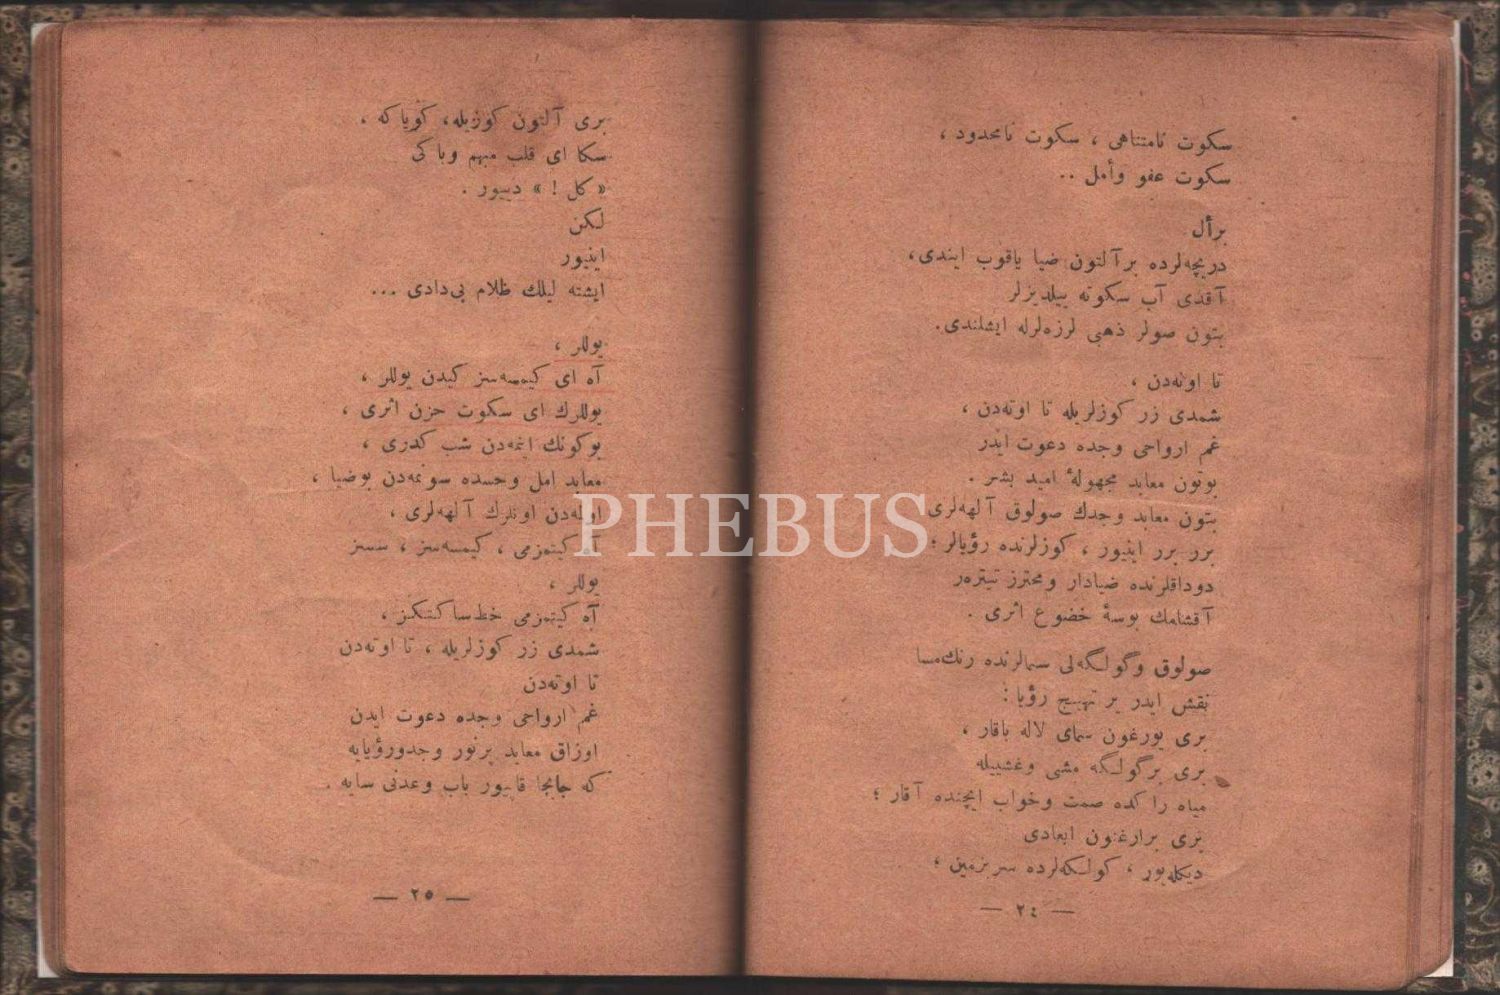 سكوت نامتناهی ، سكوت نامحدود ،
سكوت عفو وأمل ..
برأل
دریچه‌لرده بر آلتون ضیا یاقوب ایندی،
آقدی آب سكوته ییلدیزلر
بتون صولر ذهبی لرزه‌لرله ایشلندی.
تا اوته‌دن ،
شمدی زر كوزلریله تا اوته‌دن ،
غم ارواحی وجده دعوت ایدر
بوتون معابد مجهولهٔ امید بشر .
بتون معابد وجدك صولوق آلهه‌لری
برر برر اینیور ، كوزلرنده رؤیالر ؛
دوداقلرنده ضیادار ومحترز تیتره‌ر
آقشامك بوسهٔ خضوع اثری .
صولوق وگولگه‌لی سیمالرنده رنك‌مسا
نقش ایدر بر تهییج رؤیا :
بری یورغون سمای لاله باقار ،
بری برگولگه مشی وغشییله
میاه راكده صمت وخواب ایچنده آقار ؛
بری برارغنون ابعادی
دیكله‌یور ، كولگه‌لرده سربزمین ؛
— ٢٤ —
بری آلتون كوزیله، كویاكه ،
سكا ای قلب مبهم وباكی
« كل ! » دییور .
لكن
اینیور
ایشته لیلك ظلام بی‌دادی ...
یوللر ،
آه ای كیمسه‌سز كیدن یوللر ،
یوللرك ای سكوت حزن اثری ،
بوكونك اینمه‌دن شب كدری ،
معابد امل وحسده سونمه‌دن بوضیا ،
اولمه‌دن اونلرك آلهه‌لری ،
آه كیتمزمی ، كیمسه‌سز ، سسز
یوللر ،
آه كیتمزمی خط‌ساكتكز ،
شمدی زر كوزلریله ، تا اوته‌دن
تا اوته‌دن
غم ارواحی وجده دعوت ایدن
اوزاق معابد پرنور وجدورؤیایه
كه جابجا قاپیور باب وعدنی سایه .
— ٢٥ —
PHEBUS